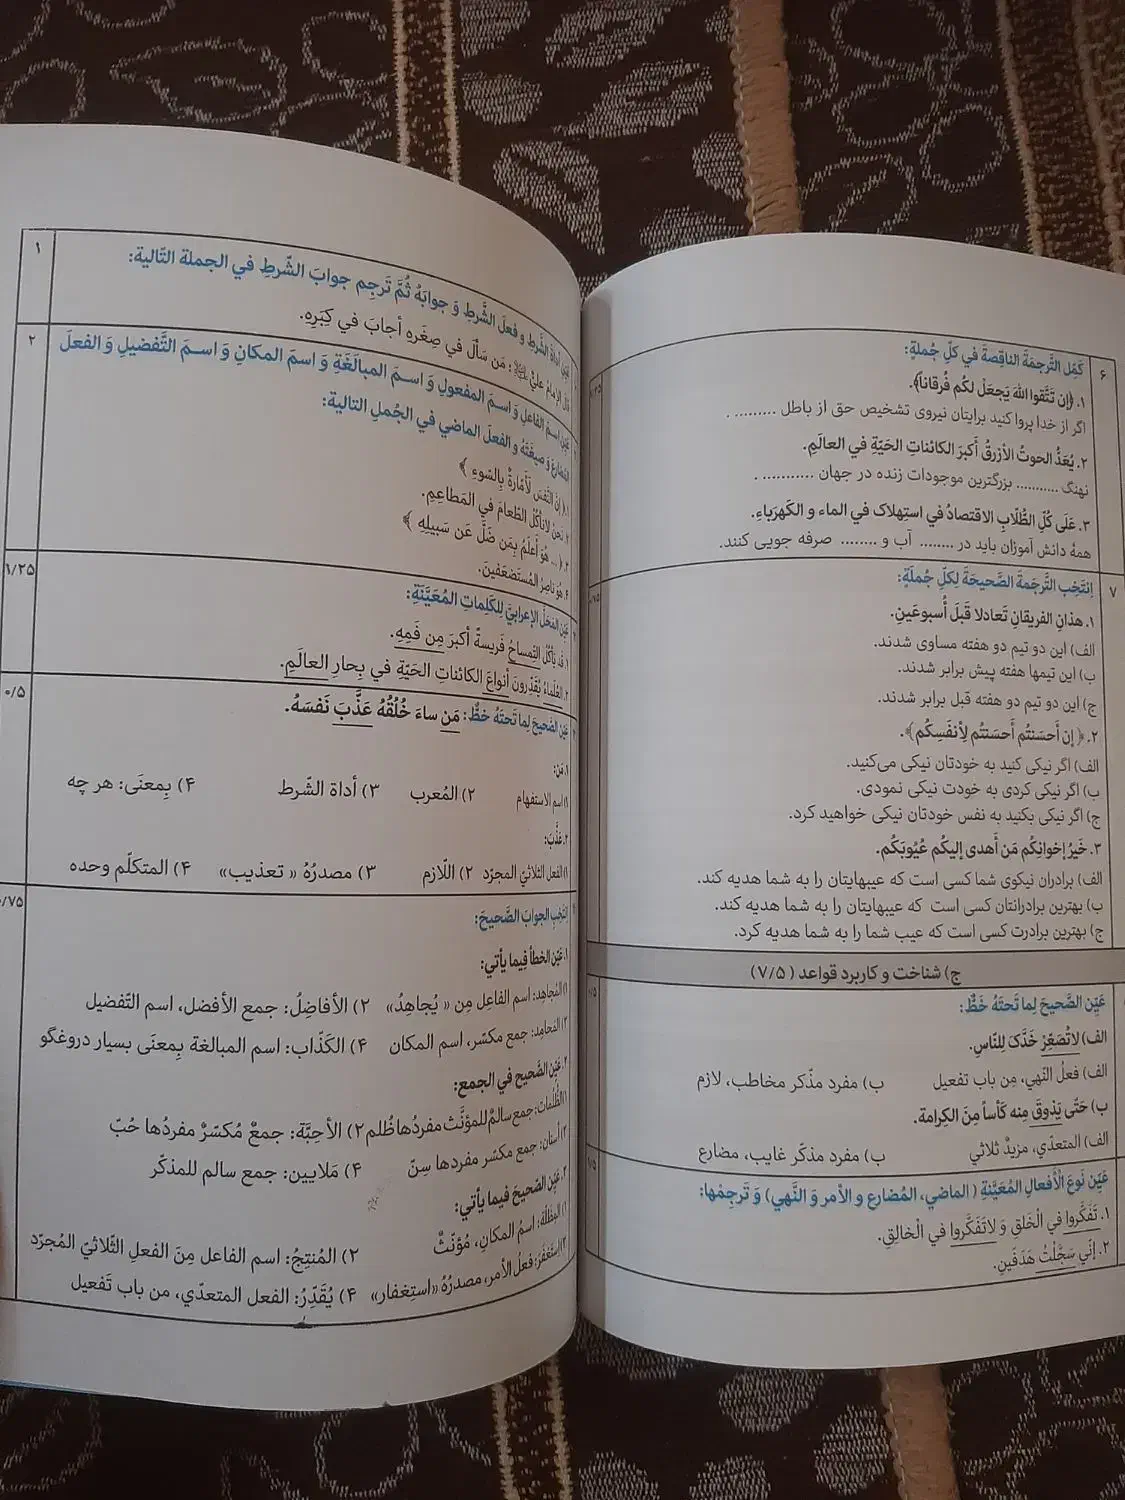 ۶
كَمِّل التَّرجَمَةَ الناقِصَةَ في كلِّ جُملةٍ:
۱. ﴿إن تَتَّقوا اللهَ يَجعَلْ لَكُم فُرقاناً﴾.
اگر از خدا پروا کنید برایتان نیروی تشخیص حق از باطل ......... .
۲. يُعَدُّ الحوتُ الأزرقُ أكبرَ الكائناتِ الحَيّةِ في العالَمِ.
نهنگ ........... بزرگترین موجودات زنده در جهان ........... .
۳. عَلَى كُلِّ الطُّلّابِ الاقتصادُ في استِهلاک في الماء و الكَهرَباءِ.
همهٔ دانش آموزان باید در ........ آب و ........ صرفه جویی کنند.
۷
اِنتَخِبِ التَّرجَمَةَ الصَّحيحَةَ لِكلِّ جُملَةٍ:
۱. هذانِ الفريقانِ تَعادلا قَبلَ أُسبوعَينِ.
الف) این دو تیم دو هفته مساوی شدند.
ب) این تیمها هفته پیش برابر شدند.
ج) این دو تیم دو هفته قبل برابر شدند.
۲. ﴿ إن أَحسَنتُم أَحسَنتُم لِأنفَسِكُم﴾.
الف) اگر نیکی کنید به خودتان نیکی می‌کنید.
ب) اگر نیکی کردی به خودت نیکی نمودی.
ج) اگر نیکی بکنید به نفس خودتان نیکی خواهید کرد.
۳. خَيرُ إخوانِكُم مَن أهدى إليكُم عُيُوبَكُم.
الف) برادران نیکوی شما کسی است که عیبهایتان را به شما هدیه کند.
ب) بهترین برادرانتان کسی است که عیبهایتان را به شما هدیه کند.
ج) بهترین برادرت کسی است که عیب شما را به شما هدیه کرد.
ج) شناخت و کاربرد قواعد (۷/۵)
عَيِّن الصَّحيحَ لِما تَحتَهُ خَطٌّ:
الف) لاتُصَعِّرْ خَدَّکَ لِلنّاسِ.
الف) فعلُ النَّهي، مِن باب تفعيل
ب) مفرد مذّکر مخاطب، لازم
ب) حَتّى يَذوقَ مِنه كَأساً مِنَ الكِرامة.
الف) المتعدّي، مزيدٌ ثلاثي
ب) مفرد مذكّر غايب، مضارع
عَيِّن نَوعَ الأفعالِ المُعَيَّنةِ (الماضي، المُضارع و الأمر وَ النَّهي) وَ تَرجِمْها:
۱. تَفَكَّروا في الْخَلقِ وَ لاتَفَكَّروا في الْخالِقِ.
۲. إنّي سَجَّلْتُ هَدَفَينِ.
۱
عَيِّن أداةَ الشَّرطِ و فعلَ الشَّرطِ وَ جوابَهُ ثُمَّ تَرجِم جوابَ الشّرطِ في الجملة التّالية:
قالَ الإمامُ عليٌّ : مَن سَألَ في صِغَرِه أجابَ في كِبَرِهِ.
۲
عَيِّن اسمَ الفاعلِ وَ اسمَ المفعولِ وَ اسمَ المبالَغَةِ وَ اسمَ المكانِ وَ اسمَ التَّفضيلِ وَ الفعلَ
المُضارعَ وَ صيغَتَهُ و الفعلَ الماضي في الجُملِ التالية:
۱. ﴿ إنَّ النَّفسَ لَأمّارةٌ بِالسّوءِ ﴾
۲. نَحنُ لانَأكُلُ الطّعامَ في المَطاعِمِ.
۳. ﴿ ... هُوَ أَعلَمُ بِمَن ضَلَّ عَن سَبيلِهِ ﴾
۴. هُوَ ناصِرُ المُستَضعَفينَ.
۱/۲۵
عَيِّن المَحَلَّ الإعرابيَّ لِلكَلِماتِ المُعَيَّنَةِ:
۱. قَد يَأكُلُ التِمساحُ فَريسةً أكبرَ مِن فَمِهِ.
۲. العُلَماءُ يُقَدِّرونَ أنواعَ الكائناتِ الحَيّةِ في بِحارِ العالَمِ.
۰/۵
عَيِّن الصَّحيحَ لِما تَحتَهُ خطٌّ: مَن ساءَ خُلُقُهُ عَذَّبَ نَفسَهُ.
۱. مَن:
۱) اسم الاستفهام
۲) المُعرب
۳) أداة الشّرط
۴) بِمعنَى: هر چه
۲. عَذَّبَ:
۱) الفعل الثلاثيّ المجرّد
۲) اللّازم
۳) مصدرُهُ « تعذيب»
۴) المتكلّم وحده
/۷۵
اِنتَخِبِ الجوابَ الصَّحيحَ:
۱. عَيِّن الخطأَ فيما يأتي:
۱) المُجاهِد: اسم الفاعل مِن « يُجاهِدُ»
۲) الأفاضِلُ: جمع الأفضل، اسم التّفضيل
۳) المَحامِد: جمع مكسّر، اسم المكان
۴) الكَذّاب: اسم المبالغة بِمعنَى بسیار دروغگو
۲. عَيِّن الصَّحيح في الجمع:
۱) الظُّلُمات: جمع سالمٌ للمؤنَّث مفردُها ظُلم
۲) الأحِبَّة: جمعٌ مُكسّرٌ مفردُها حُبّ
۳) أسنان: جمع مكسّر مفردها سِنّ
۴) مَلايين: جمع سالم للمذكّر
۳. عَيِّن الصَّحيحَ فيما يأتي:
۱) المِظَلَّة: اسمُ المكانِ، مُؤنّثٌ
۲) المُنتِجُ: اسم الفاعل مِنَ الفعلِ الثّلاثيّ المُجرّد
۳) اِستَغفَرَ: فعلُ الأمر، مصدرُهُ «استِغفار»
۴) يُقَدِّرُ: الفعل المتعدّي، من باب تَفعيل